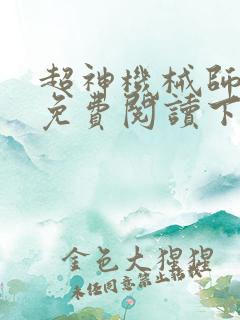 超神機械師
免費閱讀下
金色大猩猩
未经同意禁止转载